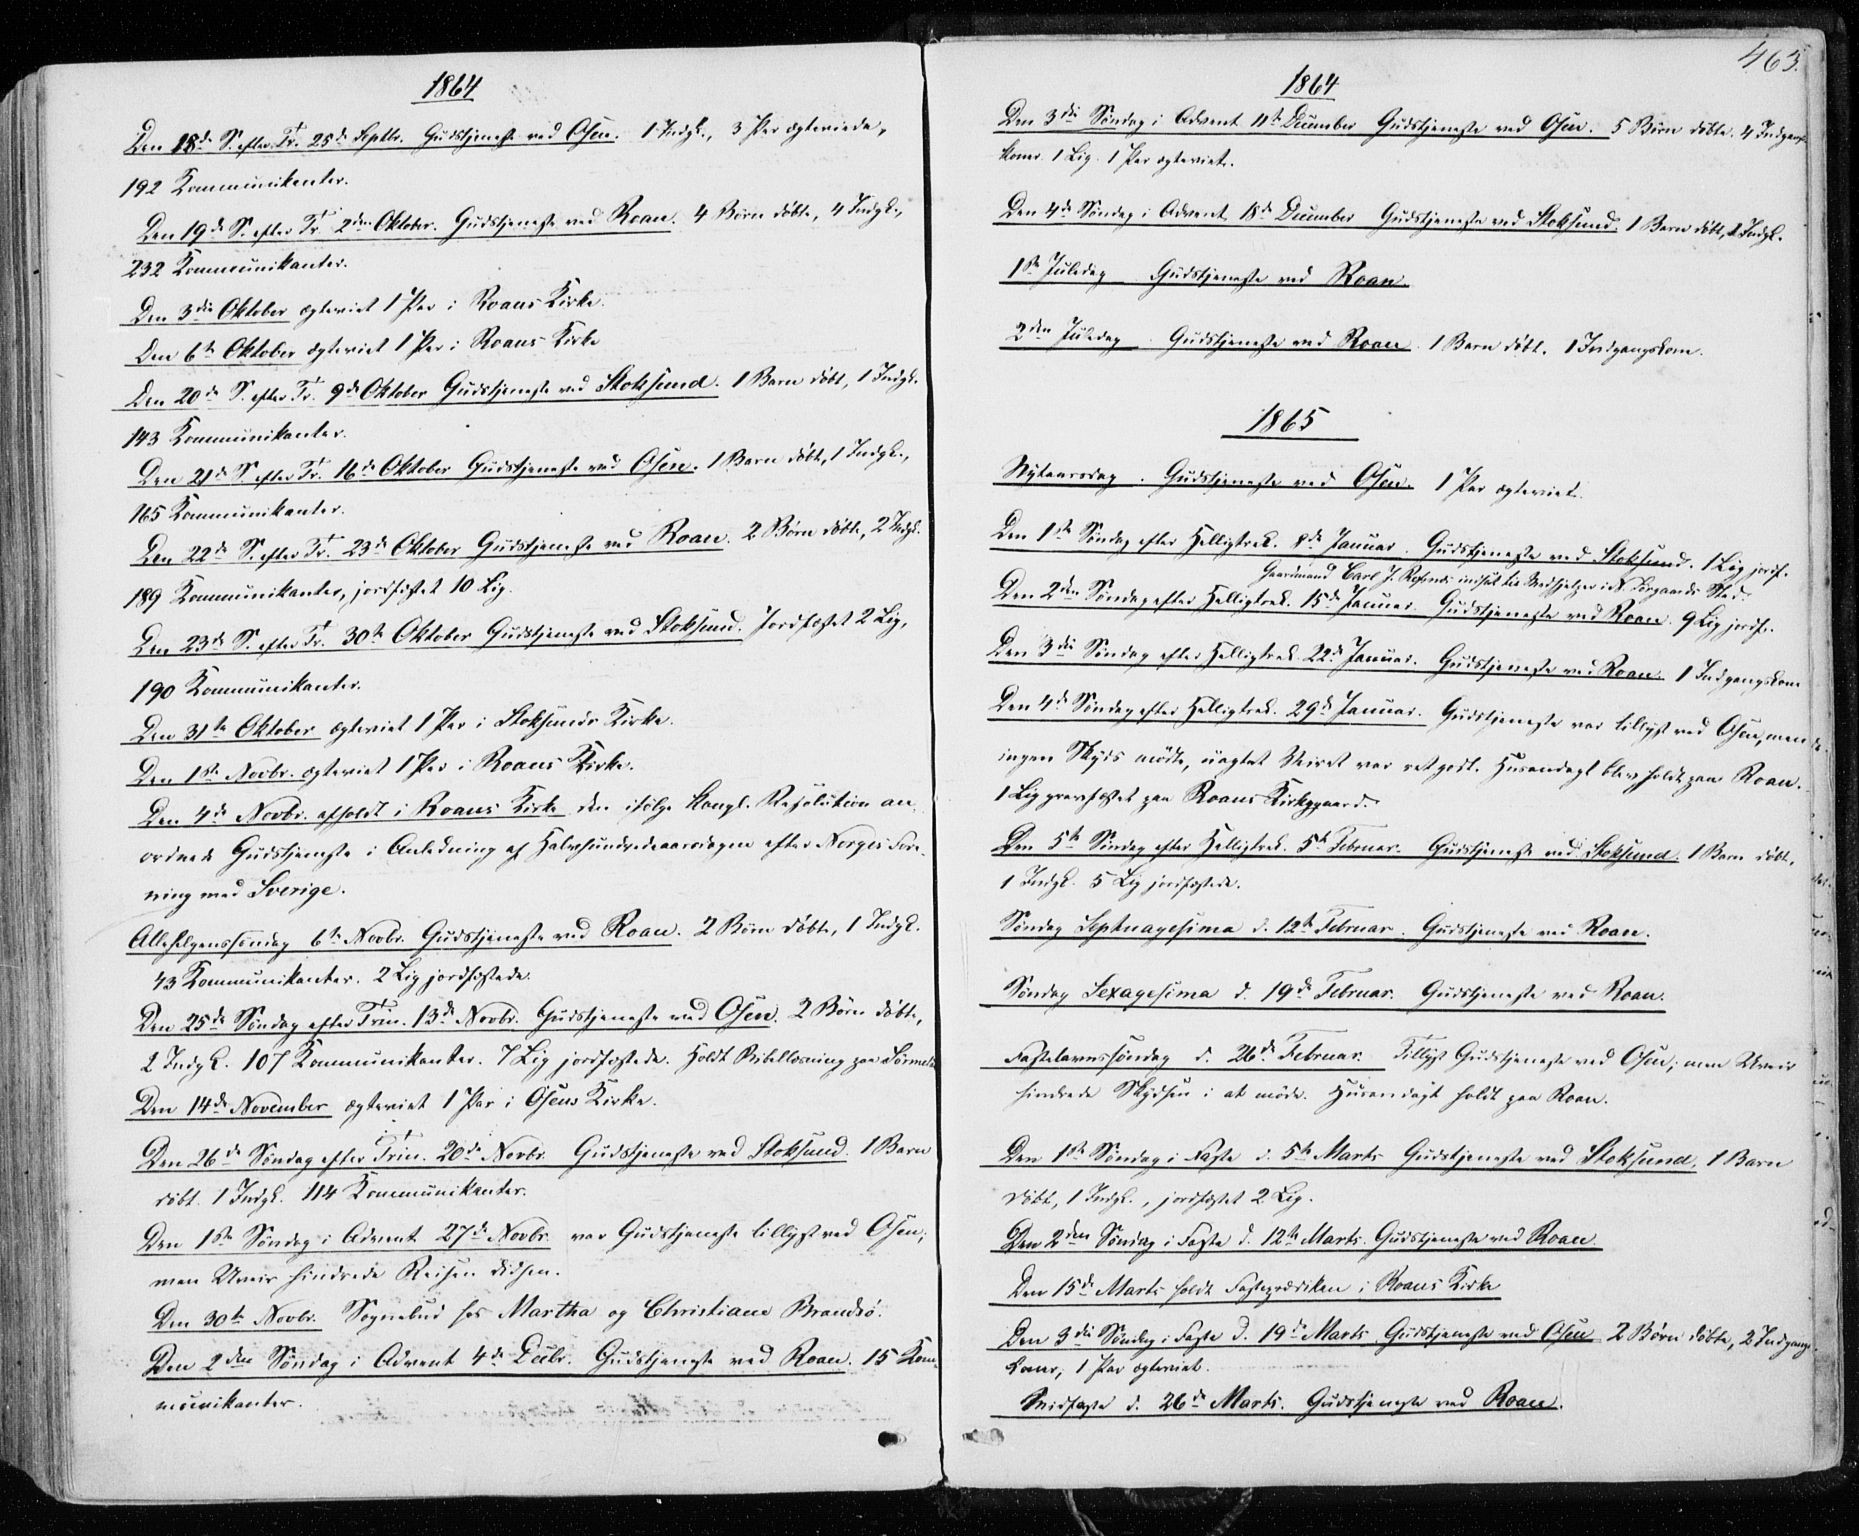 1864
Den 18de S. efter Tr. 25de Septbr. Gudstjeneste ved Osen. 1 Indgk., 3 Par ægteviede,
192 Kommunikanter.
Den 19de S. efter Tr. 2den Oktober. Gudstjeneste ved Roan. 4 Börn döbte, 4 Indgk.,
232 Kommunikanter.
Den 3die Oktober ægteviet 1 Par i Roans Kirke.
Den 6te Oktober ægteviet 1 Par i Roans Kirke
Den 20de S. efter Tr. 9de Oktober Gudstjeneste ved Stoksund. 1 Barn döbt, 1 Indgk.
143 Kommunikanter.
Den 21de S. efter Tr. 16de Oktober Gudstjeneste ved Osen. 1 Barn döbt, 1 Indgk.,
165 Kommunikanter.
Den 22de S. efter Tr. 23de Oktober Gudstjeneste ved Roan. 2 Börn döbte, 2 Indgk.
189 Kommunikanter, jordfæstet 10 Lig.
Den 23de S. efter Tr. 30te Oktober Gudstjeneste ved Stoksund. Jordfæstet 2 Lig,
190 Kommunikanter.
Den 31te Oktober ægteviet 1 Par i Stoksunds Kirke.
Den 1ste Novbr. ægteviet 1 Par i Roans Kirke.
Den 4de Novbr. afholdt i Roans Kirke den ifölge Kongl. Resolution an-
ordnede Gudstjeneste i Anledning af Halvhundredeaarsdagen efter Norges Fore-
ning med Sverige.
Allehelgenssöndag 6te Novbr. Gudstjeneste ved Roan. 2 Börn döbte, 1 Indgk.
43 Kommunikanter. 2 Lig jordfæstede.
Den 25de Söndag efter Trin. 13de Novbr. Gudstjeneste ved Osen. 2 Börn döbte,
2 Indgk. 107 Kommunikanter. 7 Lig jordfæstede. Holdt Bibellæsning paa
Den 14de November ægteviet 1 Par i Osens Kirke.
Den 26de Söndag efter Trin. 20de Novbr. Gudstjeneste ved Stoksund. 1 Barn
döbt. 1 Indgk. 114 Kommunikanter.
Den 1ste Söndag i Advent 27de Novbr. var Gudstjeneste tillyst ved Osen;
men Uveir hindrede Reisen didhen.
Den 30te Novbr. Sognebud hos Martha og Christiane Brandsö.
Den 2den Söndag i Advent 4de Decbr. Gudstjeneste ved Roan. 15 Kom-
munikanter.
463.
1864
Den 3die Söndag i Advent 11te December Gudstjeneste ved Osen. 5 Börn döbte. 4 Indgangs-
koner. 1 Lig. 1 Par ægteviet.
Den 4de Söndag i Advent 18de December Gudstjeneste ved Stoksund. 1 Barn döbt, 1 Indgk.
1ste Juledag Gudstjeneste ved Roan.
2den Juledag. Gudstjeneste ved Roan. 1 Barn döbt. 1 Indgangskone.
1865
Nytaarsdag. Gudstjeneste ved Osen. 1 Par ægteviet.
Den 1ste Söndag efter Helligtrek. 8de Januar. Gudstjeneste ved Stoksund. 1 Lig jordf.
Gaardmand Carl J. indsat til Medhjelper i Sted.
Den 2den Söndag efter Helligtrek. 15de Januar. Gudstjeneste ved Roan. 9 Lig jordf.
Den 3die Söndag efter Helligtrek. 22de Januar. Gudstjeneste ved Roan. 1 Indgangskone
Den 4de Söndag efter Helligtrek. 29de Januar. Gudstjeneste var tillyst ved Osen, men
ingen Skyds mödte, uagtet Veiret var ret godt. Husandagt blev holdt paa Roan.
1 Lig gravfæstet paa Roans Kirkegaard.
Den 5te Söndag efter Helligtrek. 5te Februar. Gudstjeneste ved Stoksund. 1 Barn döbt,
1 Indgk. 5 Lig jordfæstede.
Söndag Septuagesima d. 12te Februar. Gudstjeneste ved Roan.
Söndag Sexagesima d. 19de Februar. Gudstjeneste ved Roan.
Fastelavnssöndag d. 26de Februar. Tillyst Gudstjeneste ved Osen; men Uveir
hindrede Skydsen i at möde. Husandagt holdt paa Roan.
Den 1ste Söndag i Faste d. 5te Marts Gudstjeneste ved Stoksund, 1 Barn
döbt, 1 Indgk., jordfæstet 2 Lig.
Den 2den Söndag i Faste d. 12te Marts. Gudstjeneste ved Roan.
Den 15de Marts holdt Fasteprædiken i Roans Kirke
Den 3die Söndag i Faste d. 19de Marts Gudstjeneste ved Osen 2 Börn döbte, 2 Indgangs-
koner, 1 Par ægteviet.
Midfaste d. 26de Marts. Gudstjeneste ved Roan.